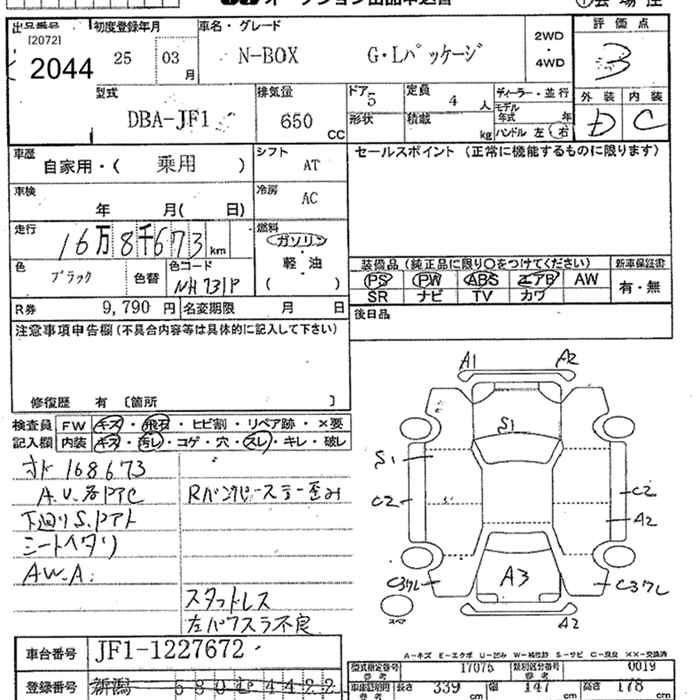 オークション出品申込書
出品番号 初度登録年月 車名・グレード 評価点
[2072]
2044 25 03月 N-BOX G・Lパッケージ 2WD・4WD 3
型式 排気量 ドア 5 定員 4人 ディーラー・並行 外装 内装
DBA-JF1 650 CC 形状 積載 kg モデル年式 年 D C
ハンドル 左 右
車歴 自家用・( 乗用 ) シフト AT セールスポイント (正常に機能するものに限ります)
車検 年 月( 日) 冷房 AC
走行 16万8千673 km 燃料 ガソリン・軽・油 ( )
色 ブラック 色替 色コード NH731P
装備品 (純正品に限り○をつけてください) 新車保証書
PS PW ABS エアB AW 有・無
SR ナビ TV カワ
R券 9,790 円 名変期限 月 日 後日品
注意事項申告欄 (不具合内容等は具体的に記入して下さい)
修復歴 有 〔箇所 〕
検査員 FW キズ・飛石・ヒビ割・リペア跡・×要
記入欄 内装 キズ・汚レ・コゲ・穴・スレ・キレ・破レ
オド 168673
下廻りS.
シートヘタリ
A.W.A.
スタッドレス
左パワスラ不良
A1 A2
S1
S1
C2 C2
A2
A3
スペア
A2
A-キズ E-エクボ U-凹み W-補修跡 S-サビ C-腐食 ××-交換済
車台番号 JF1-1227672
型式指定番号 17075 類別区分番号 0019
登録番号 新潟 580 4422
参考 長さ 339 cm 幅 147 cm 高さ 178 cm